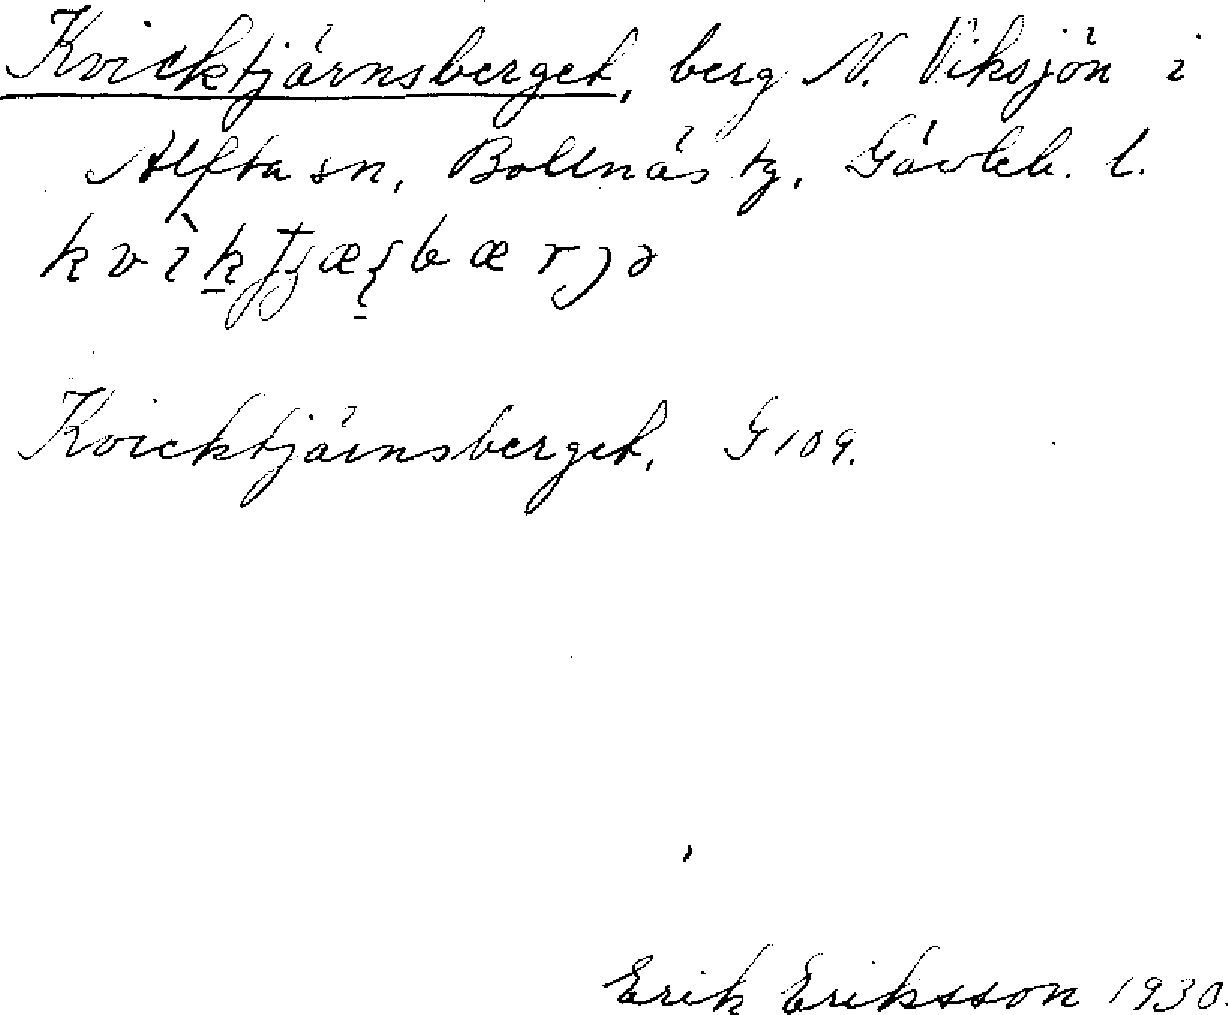 Kvicktjärnsberget, berg N. Viksjön i
Alfta sn, Bollnäs tg, Gävleb. l.
Kvicktjärnsberget, G 109.
Erik Eriksson 1930.